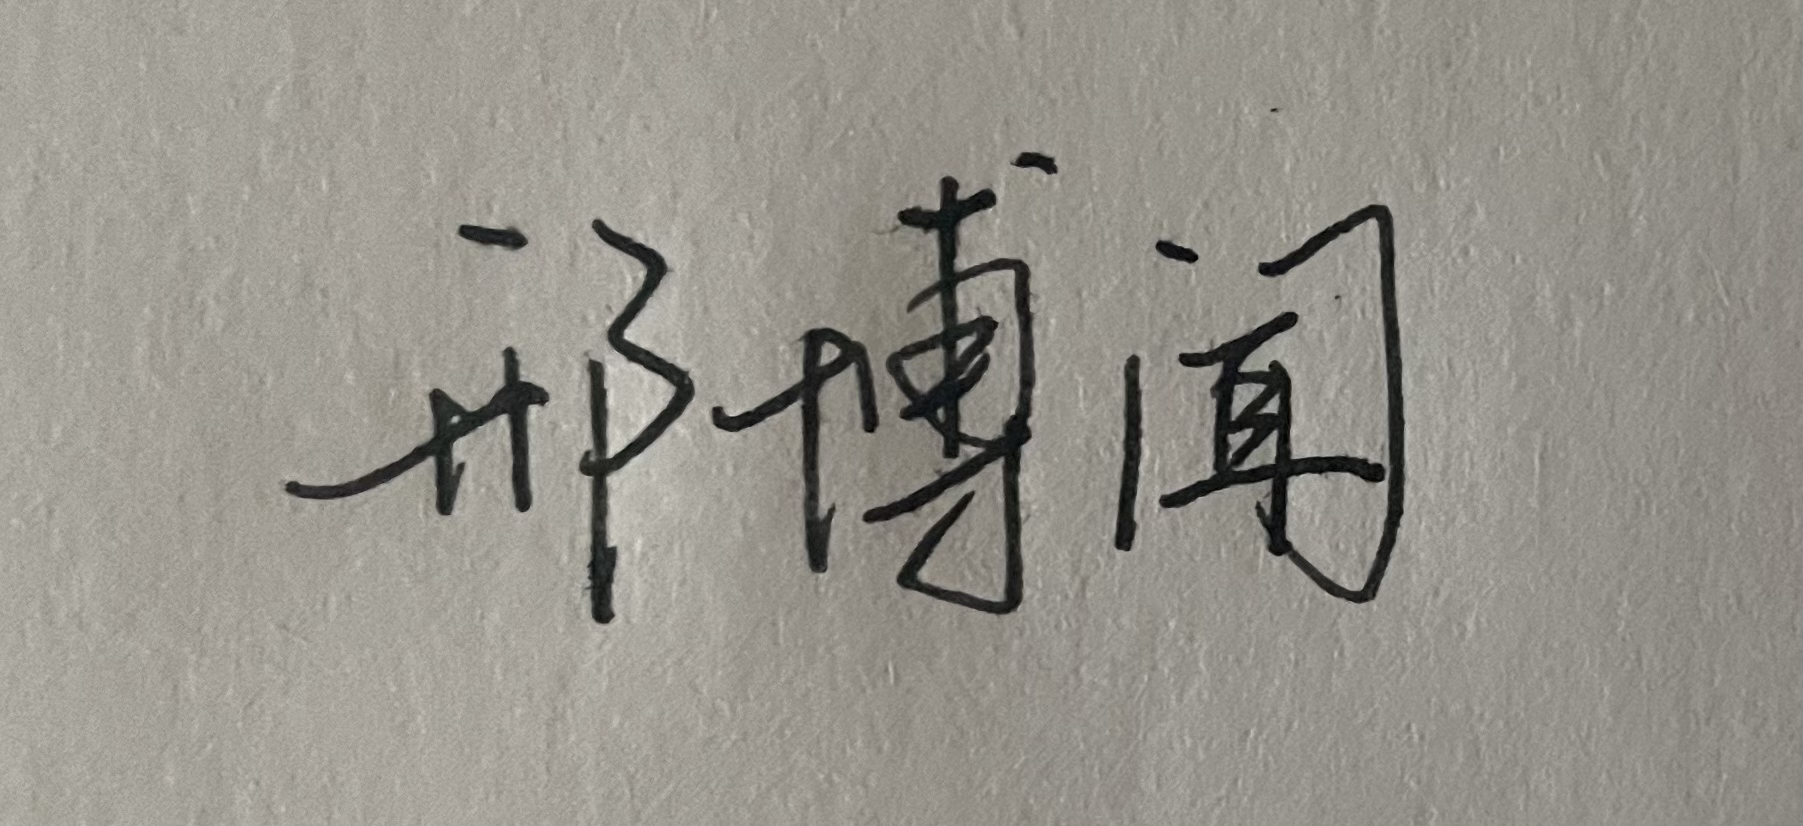 邢博闻